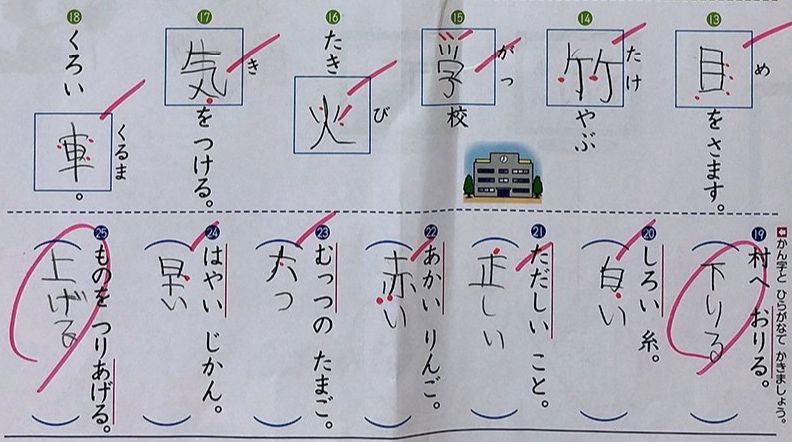 ⑬
目をさます。
め
⑭
竹やぶ
たけ
⑮
学校
がっ
⑯
たき火
び
⑰
気をつける。
き
⑱
くろい 車。
くるま
かん字と ひらがなで かきましょう。
⑲村へ おりる。
下りる
⑳しろい 糸。
白い
㉑ただしい こと。
正しい
㉒あかい りんご。
赤い
㉓むっつの たまご。
六つ
㉔はやい じかん。
早い
㉕ものを つりあげる。
上げる